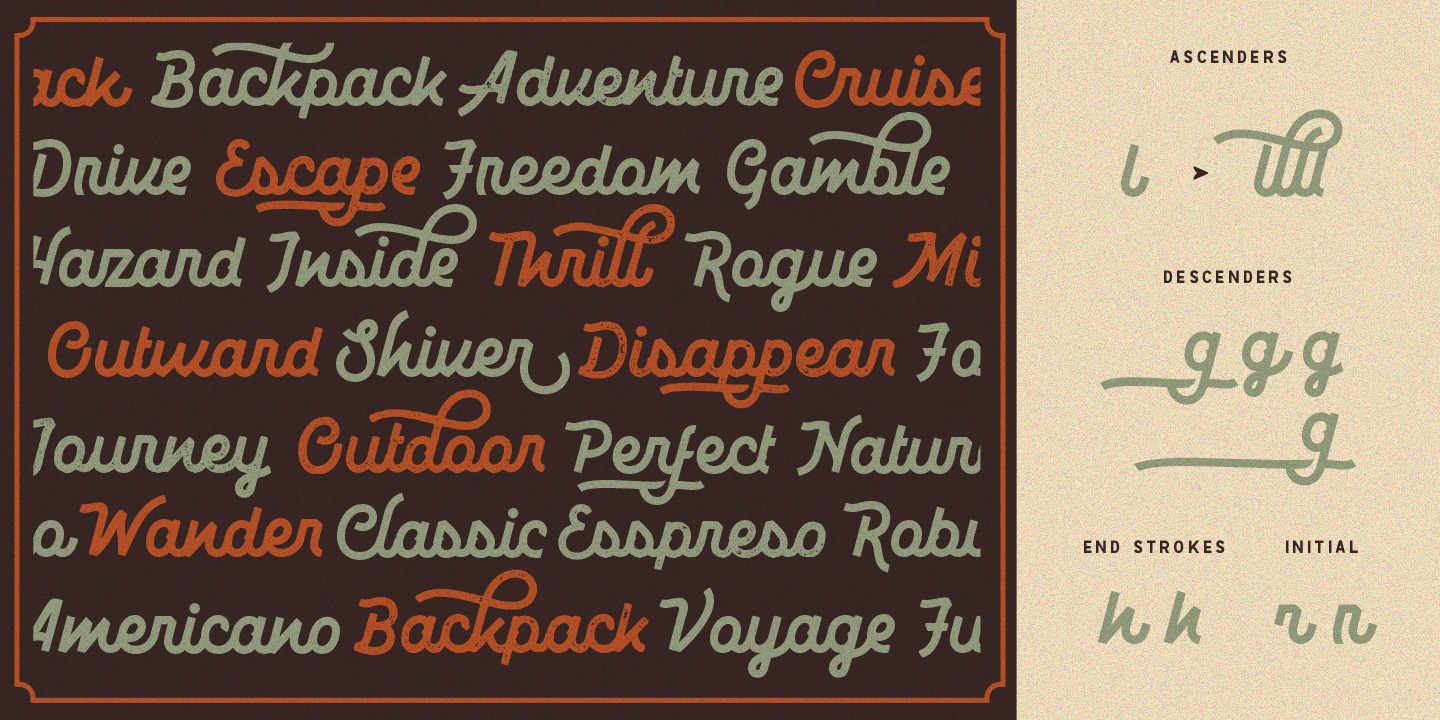 ack Backpack Adventure Cruise
Drive Escape Freedom Gamble
Hazard Inside Thrill Rogue Mi
Outward Shiver Disappear Fo
Journey Outdoor Perfect Natur
o Wander Classic Esspreso Robu
Americano Backpack Voyage Fu
ASCENDERS
l ➤ llll
DESCENDERS
g g g
g
END STROKES INITIAL
h h r r